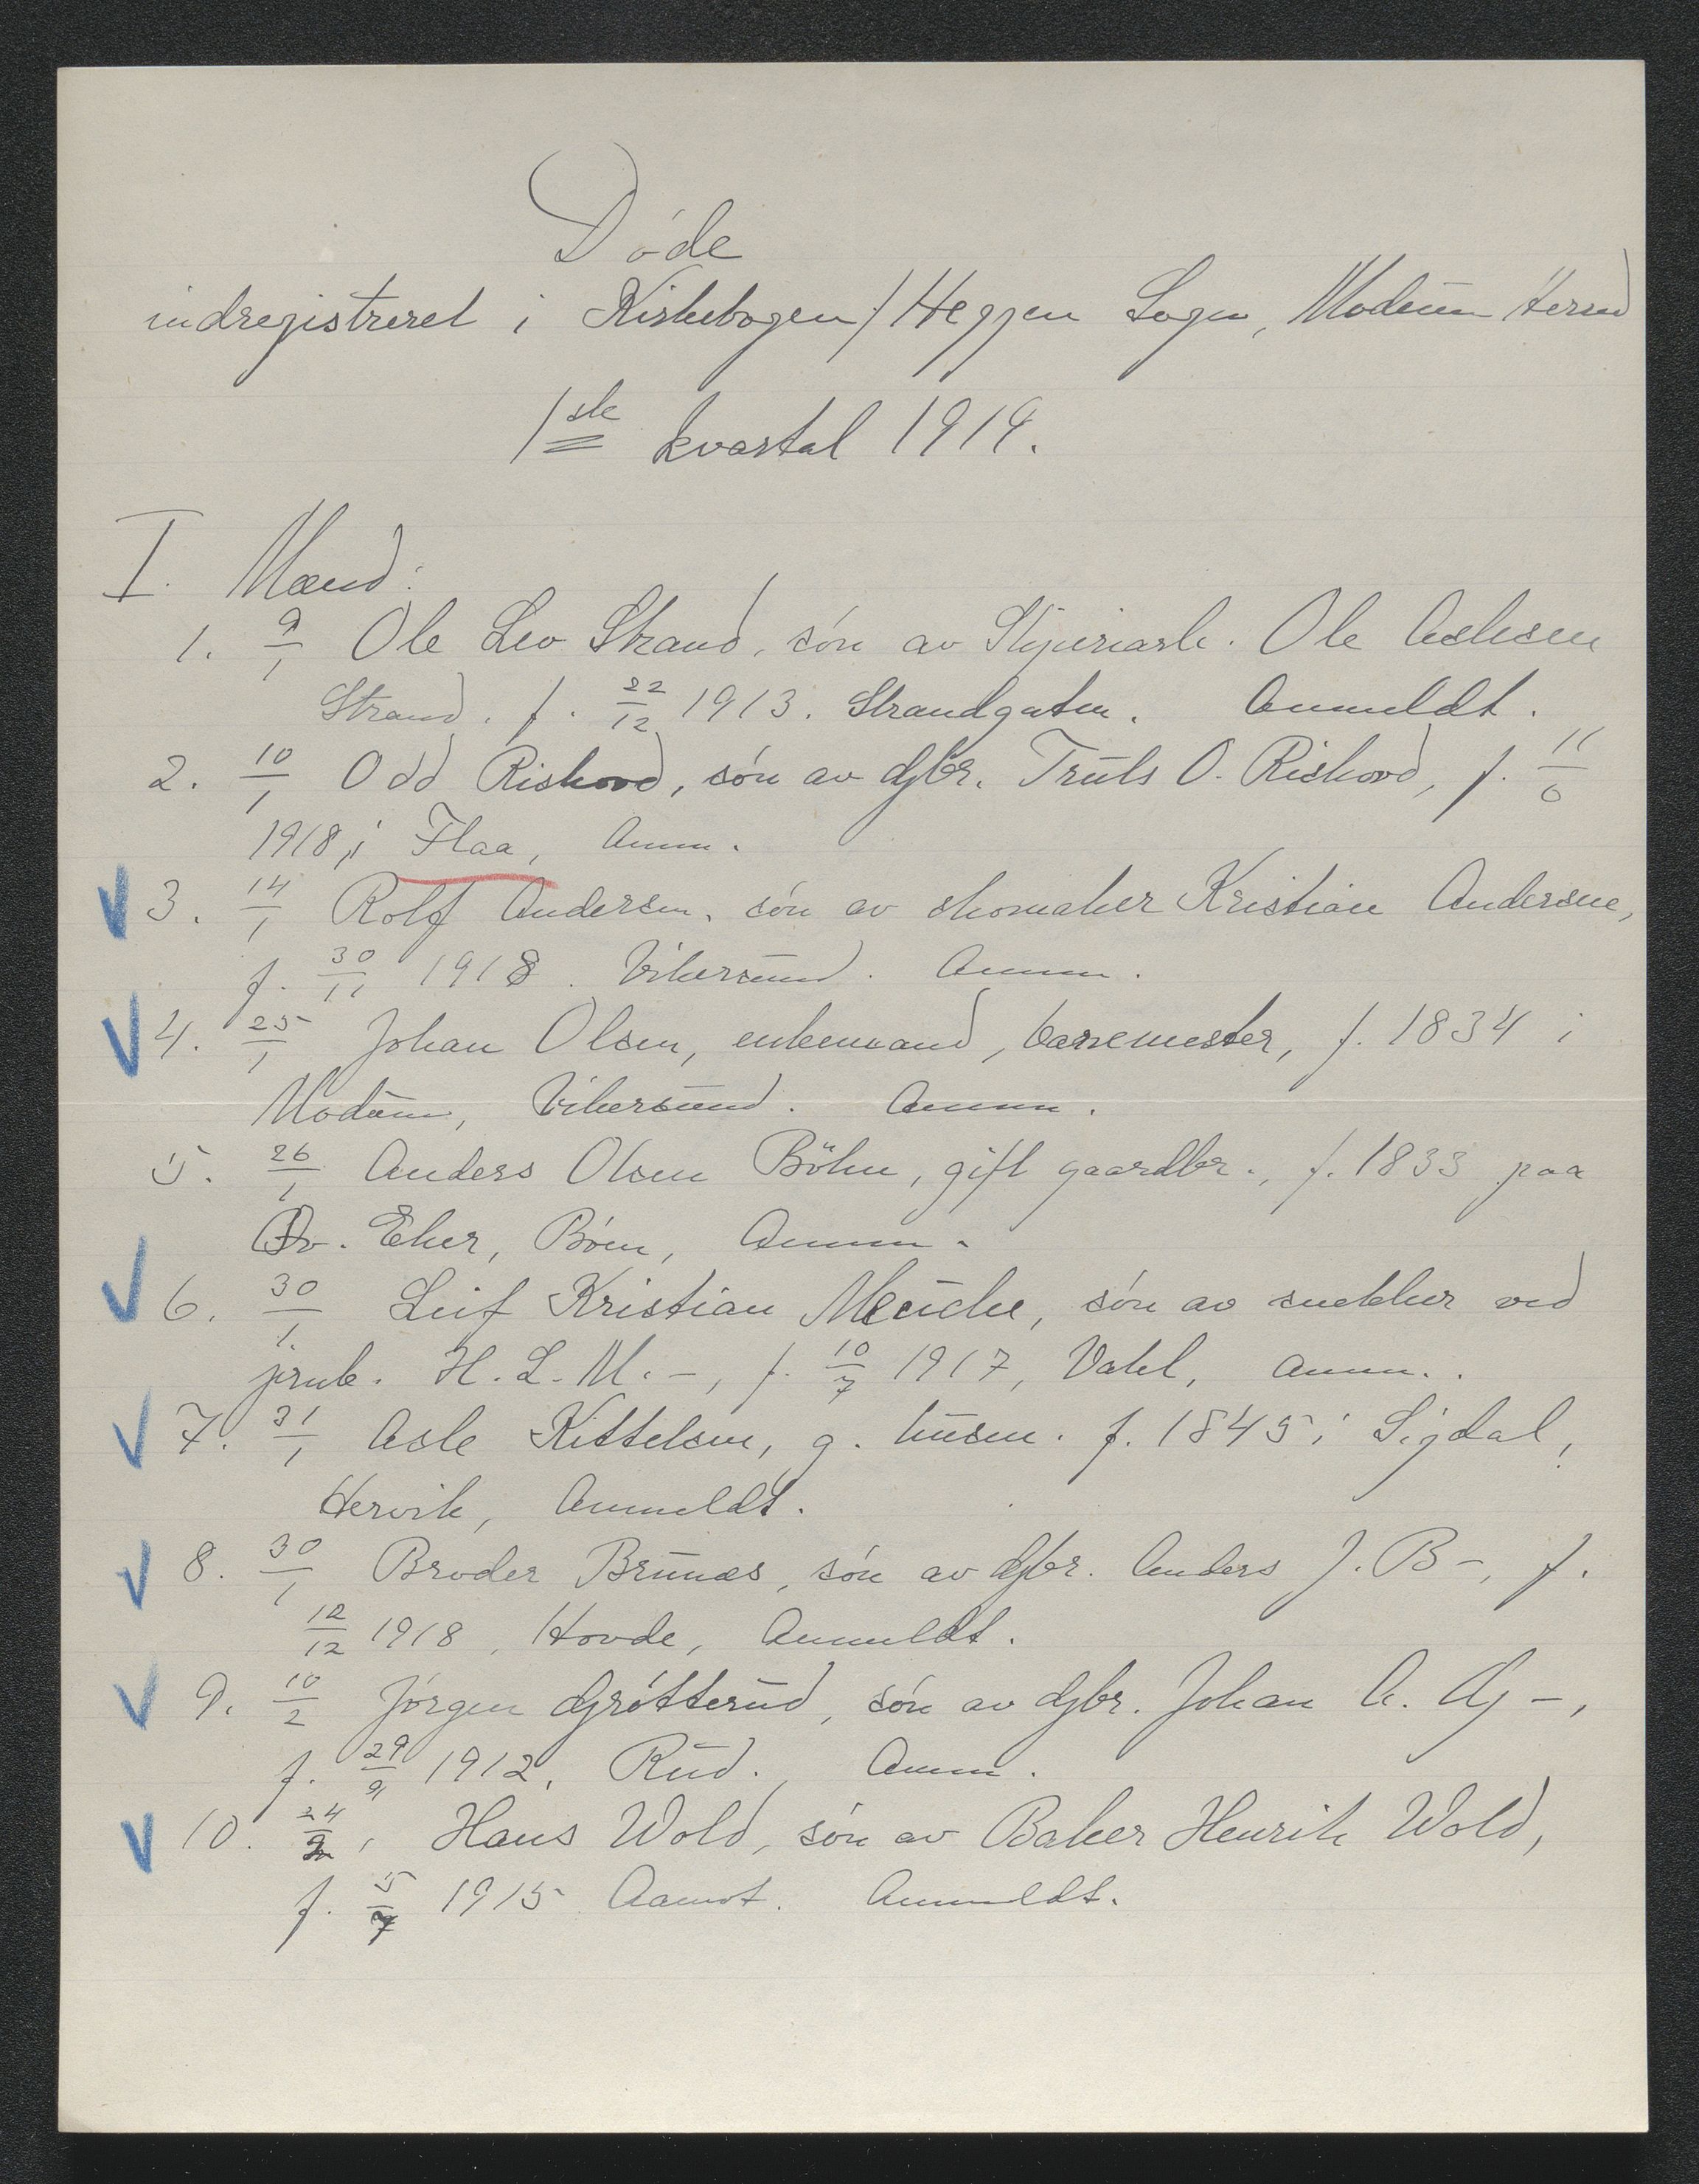 Døde
indregistreret i Kirkebogen f Heggen Sogn, Modum Herred
1ste kvartal 1919.
I. Mænd:
1. 9/1 Ole Leo Strand, søn av Ole Aslesen
Strand. f. 22/12 1913. Strandgaten. Anmeldt.
2. 10/1 Odd Riskovd, søn av Gjbr. Truls O. Riskovd, f. 11/6
1918, i Flaa, Anm.
3. 14/1 Rolf Andersen, søn av skomaker Kristian Andersen,
f. 30/11 1918. Vikersund. Anm.
4. 25/1 Johan Olsen, enkemand, barremester, f. 1834 i
Modum, Vikersund. Anm.
5. 26/1 Anders Olsen Böhn, gift gaardbr., f. 1833 paa
Øv. Eker, Bøen, Anm.
6. 30/1 Leif Kristian Mencke, søn av snekker ved
jernb. H. L. M. -, f. 10/7 1917, Anm.
7. 31/1 Asle Kittelsen, g. husm. f. 1845 i Sigdal,
Hervik, Anmeldt.
8. 30/1 Broder Brunæs, søn av Gjbr. Anders J. B -, f.
12/12 1918, Hovde, Anmeldt.
9. 10/2 Jørgen Grøtterud, søn av Gjbr. Johan A. G -,
f. 29/9 1912, Rud., Anm.
10. 24/2, Hans Wold, søn av Baker Henrik Wold,
f. 5/7 1915 Aamot. Anmeldt.